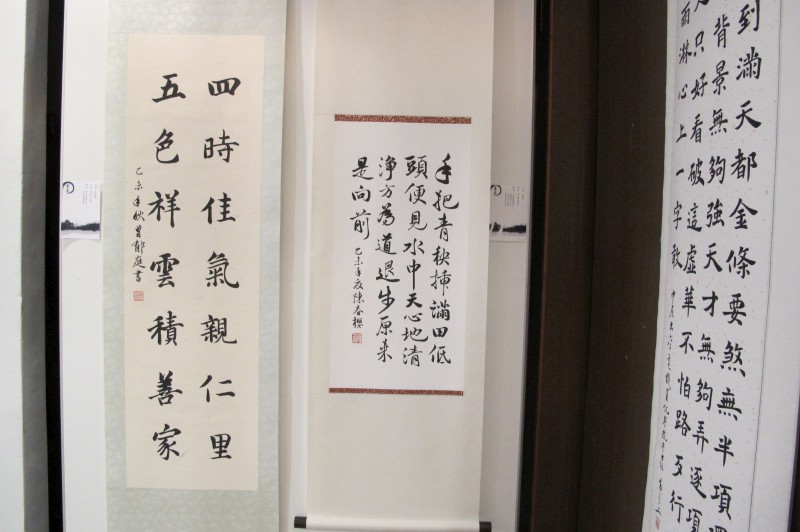 四時佳氣親仁里
五色祥雲積善家
乙未年秋曾郁庭書
手把青秧插滿田低
頭便見水中天心地清
淨方為道退步原來
是向前
乙未年夏陳春櫻
到滿天都金條要煞無半項
背景無夠強天才無夠弄逐項
只好看破這虛華不怕路歹行
雨淋心上一字敢